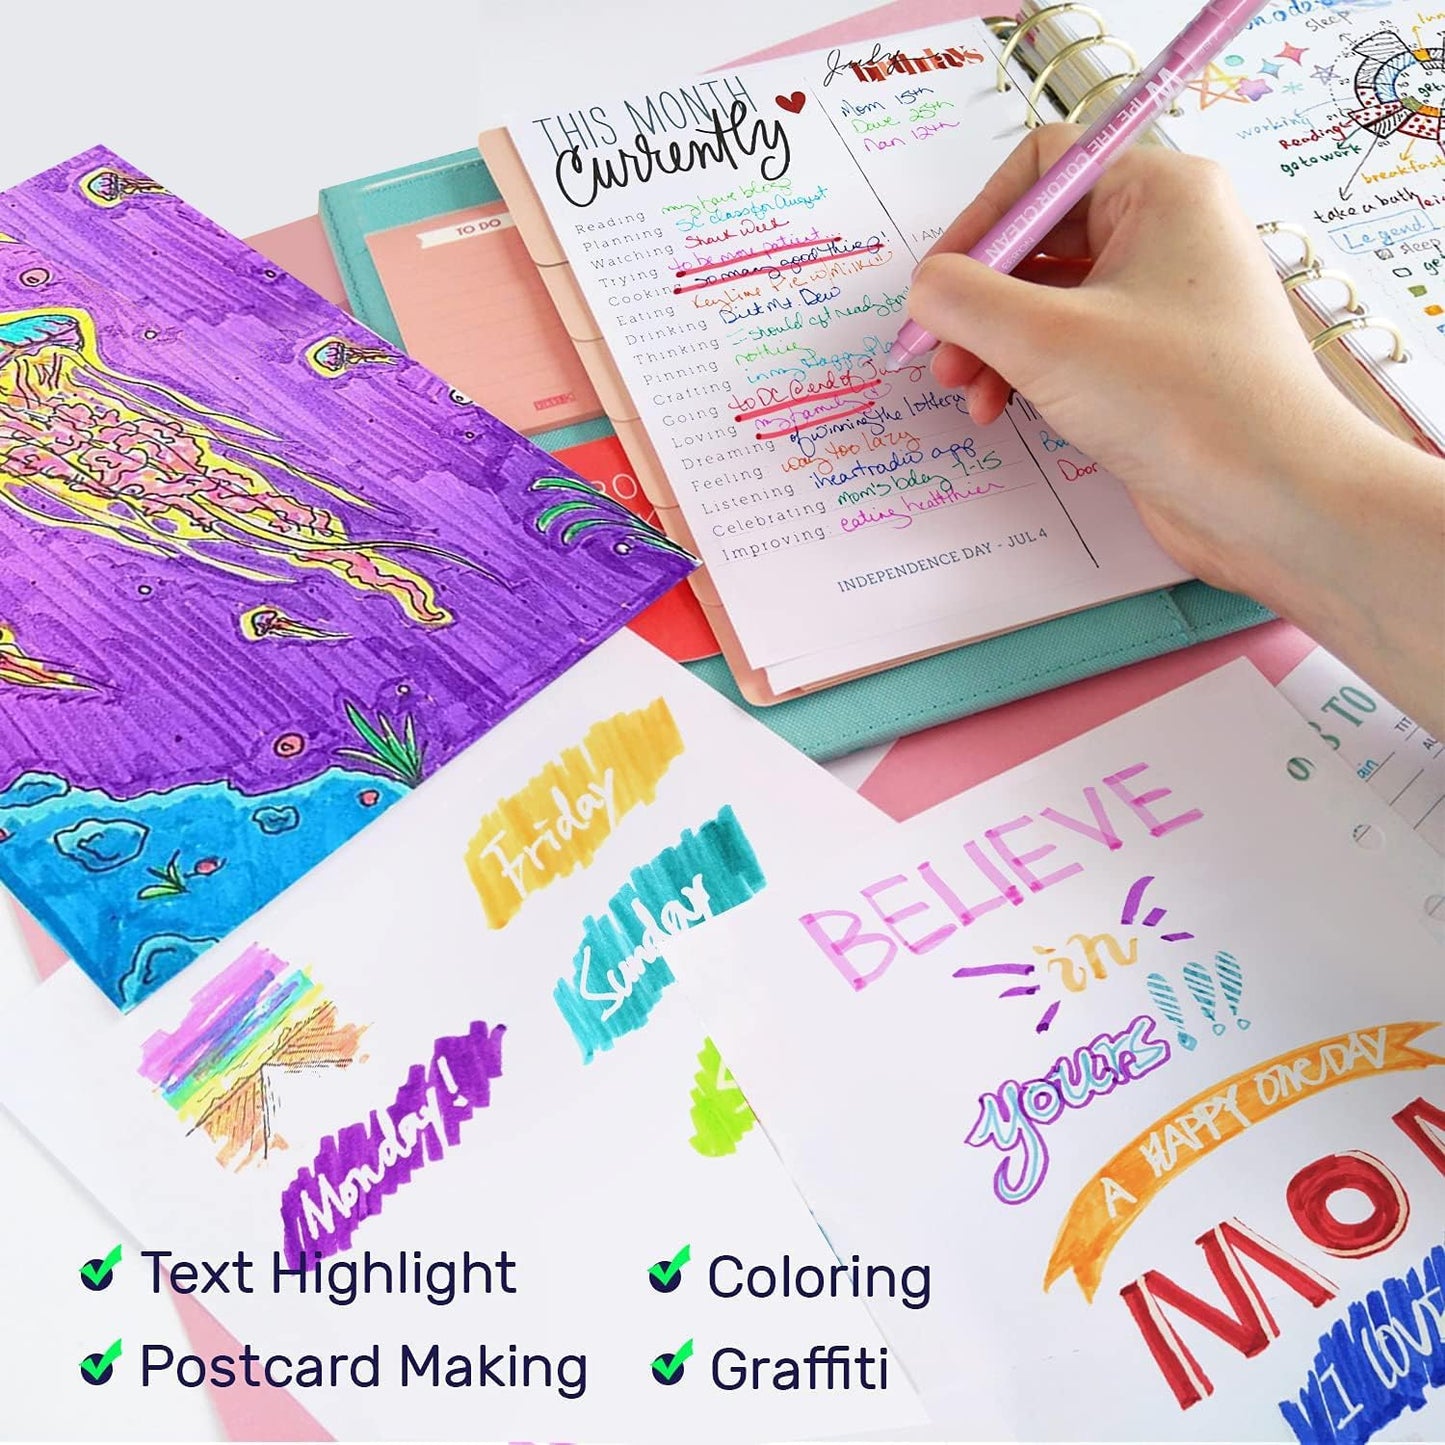 July
birthdays
Mom 15th
Dave 25th
Nan 12th
THIS MONTH
Currently
TO DO
Reading my fave blogs
Planning SC class for August
Watching Shark Week
Trying to be more patient...
Cooking so many good things!
Eating Key Lime Pie w/ Milk
Drinking Diet Mt. Dew
Thinking I should get ready for
Pinning nothing
Crafting in my Happy Pla
Going to DC @ end of July
Loving my family
Dreaming of winning the lottery
Feeling way too lazy
Listening iheartradio app
Celebrating mom's bday 7-15
Improving: eating healthier
INDEPENDENCE DAY - JUL 4
I AM
WIPE THE COLOR CLEAN
sleep
working
Reading
go to work
breakfast
take a bath
Legend
sleep
TO
Friday
Sunday
Monday!
BELIEVE
in
yours!!!
A HAPPY ONE DAY
MOM
I LOVE
Text Highlight
Coloring
Postcard Making
Graffiti